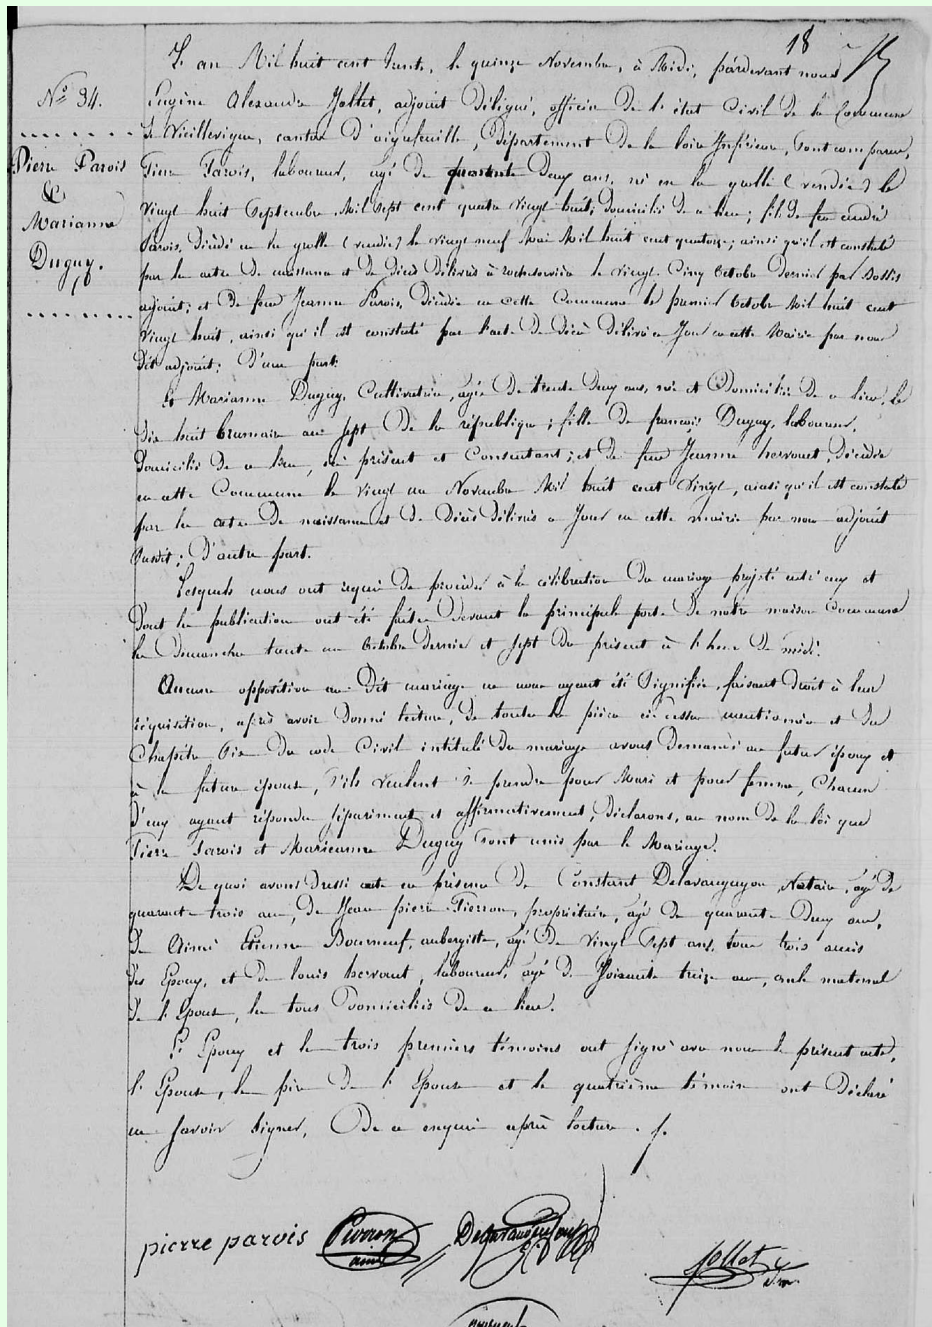 18
N.º 34.
Pierre Parois
&
Marianne
Duguy.
L'an Mil huit cent trente, le quinze Novembre, à Midi, pardevant nous
Eugène Alexandre Jollet, adjoint délégué, officier de l'état Civil de la Commune
de Vieillevigne, canton d'aigrefeuille, Département de la loire Inférieure, sont comparus,
Pierre Parois, laboureur, agé de quarante Deux ans, né en la grolle (vendée) le
vingt huit Septembre Mil Sept cent quatre vingt huit; domicilié de ce lieu; fils de feu andré
Parois, Décédé en la grolle (vendée) le vingt neuf Mai Mil huit cent quatorze; ainsi qu'il est constaté
par les actes de naissance et de Décès délivrés à rocheservière le vingt Cinq Octobre Dernier par
adjoint; et de feue Jeanne Parois, Décédée en cette Commune le premier Octobre Mil huit cent
vingt huit, ainsi qu'il est constaté par l'acte de décès délivré ce Jour en cette Mairie par nous
dit adjoint; D'une part.
Et Marianne Duguy, Cultivatrice, agée de trente deux ans, née et Domiciliée de ce lieu, le
dix huit brumaire an sept de la république; fille de françois Duguy, laboureur,
domicilié de ce lieu, ici présent et Consentant; et de feue Jeanne hervouet, décédée
en cette Commune le vingt un Novembre Mil huit cent vingt, ainsi qu'il est constaté
par les actes de naissance et de Décès délivrés ce Jour en cette mairie par nous adjoint
susdit; D'autre part.
Lesquels nous ont requis de procéder à la célébration du mariage projeté entr'eux et
dont les publications ont été faites devant la principale porte de notre maison Commune
les Dimanches trente un Octobre dernier et sept du présent à l'heure de midi.
Aucune opposition au Dit mariage ne nous ayant été Signifiée, faisant droit à leur
réquisition, après avoir Donné lecture, de toutes les pièces ci-dessus mentionnées et du
Chapitre Six du code Civil intitulé du mariage avons demandé au futur époux et
à la future épouse, s'ils veulent se prendre pour Mari et pour femme, Chacun
d'eux ayant répondu séparément et affirmativement, déclarons, au nom de la loi que
Pierre Parois et Marianne Duguy sont unis par le Mariage.
De quoi avons Dressé acte en présence de Constant Delavauguyon, Notaire, agé de
quarante-trois ans, de Jean pierre Pierron, propriétaire, agé de quarante-Deux ans,
de Aimé Etienne Bourneuf, aubergiste, agé de vingt sept ans, tous trois amis
des Epoux, et de louis hervouet, laboureur, agé de soixante treize ans, oncle maternel
de l'Epouse, les tous Domiciliés de ce lieu.
L'Epoux et les trois premiers témoins ont signé avec nous le présent acte,
l'Epouse, le père de l'Epouse et le quatrième témoin ont Déclaré
ne savoir Signer, De ce enquis après lecture. /.
pierre parois Pierron
ainé
Jollet